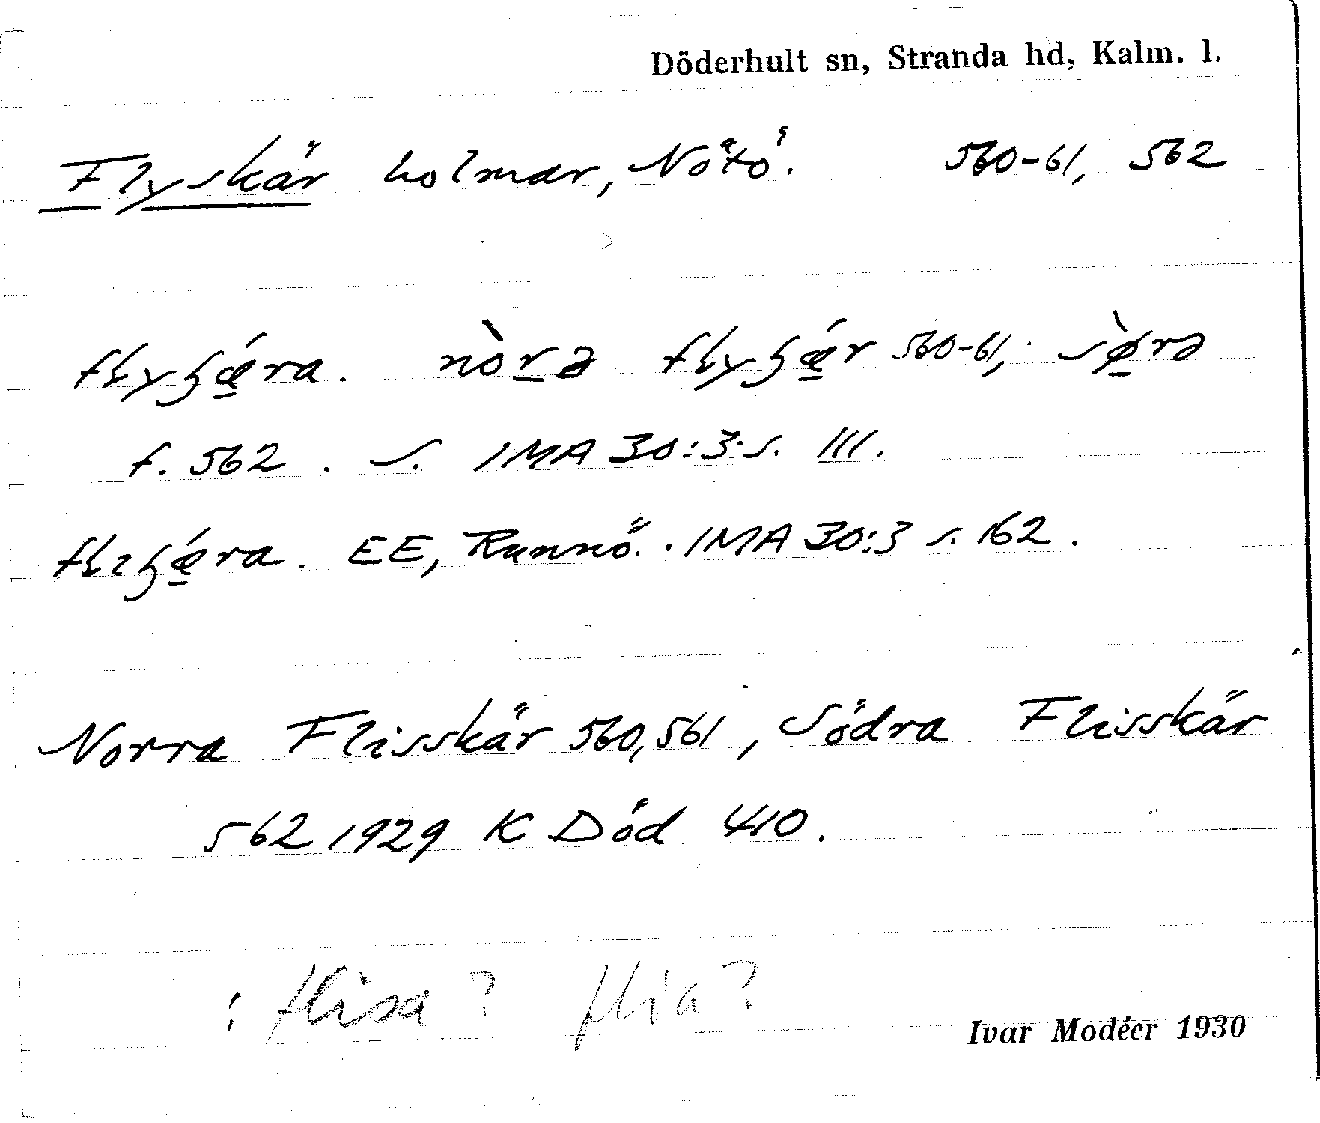 Döderhult sn, Stranda hd, Kalm. l.
Flyskär holmar, Nötö. 560-61, 562
flyʃǽra. nòrə flyʃǽr 560-61, sø̀rə
f. 562. s. IMA 30:3 s. 111.
flɪʃǽra. EE, Runnö. IMA 30:3 s. 162.
Norra Flisskär 560, 561, Södra Flisskär
562 1929 K Död 410.
: flisa? flia?
Ivar Modéer 1930